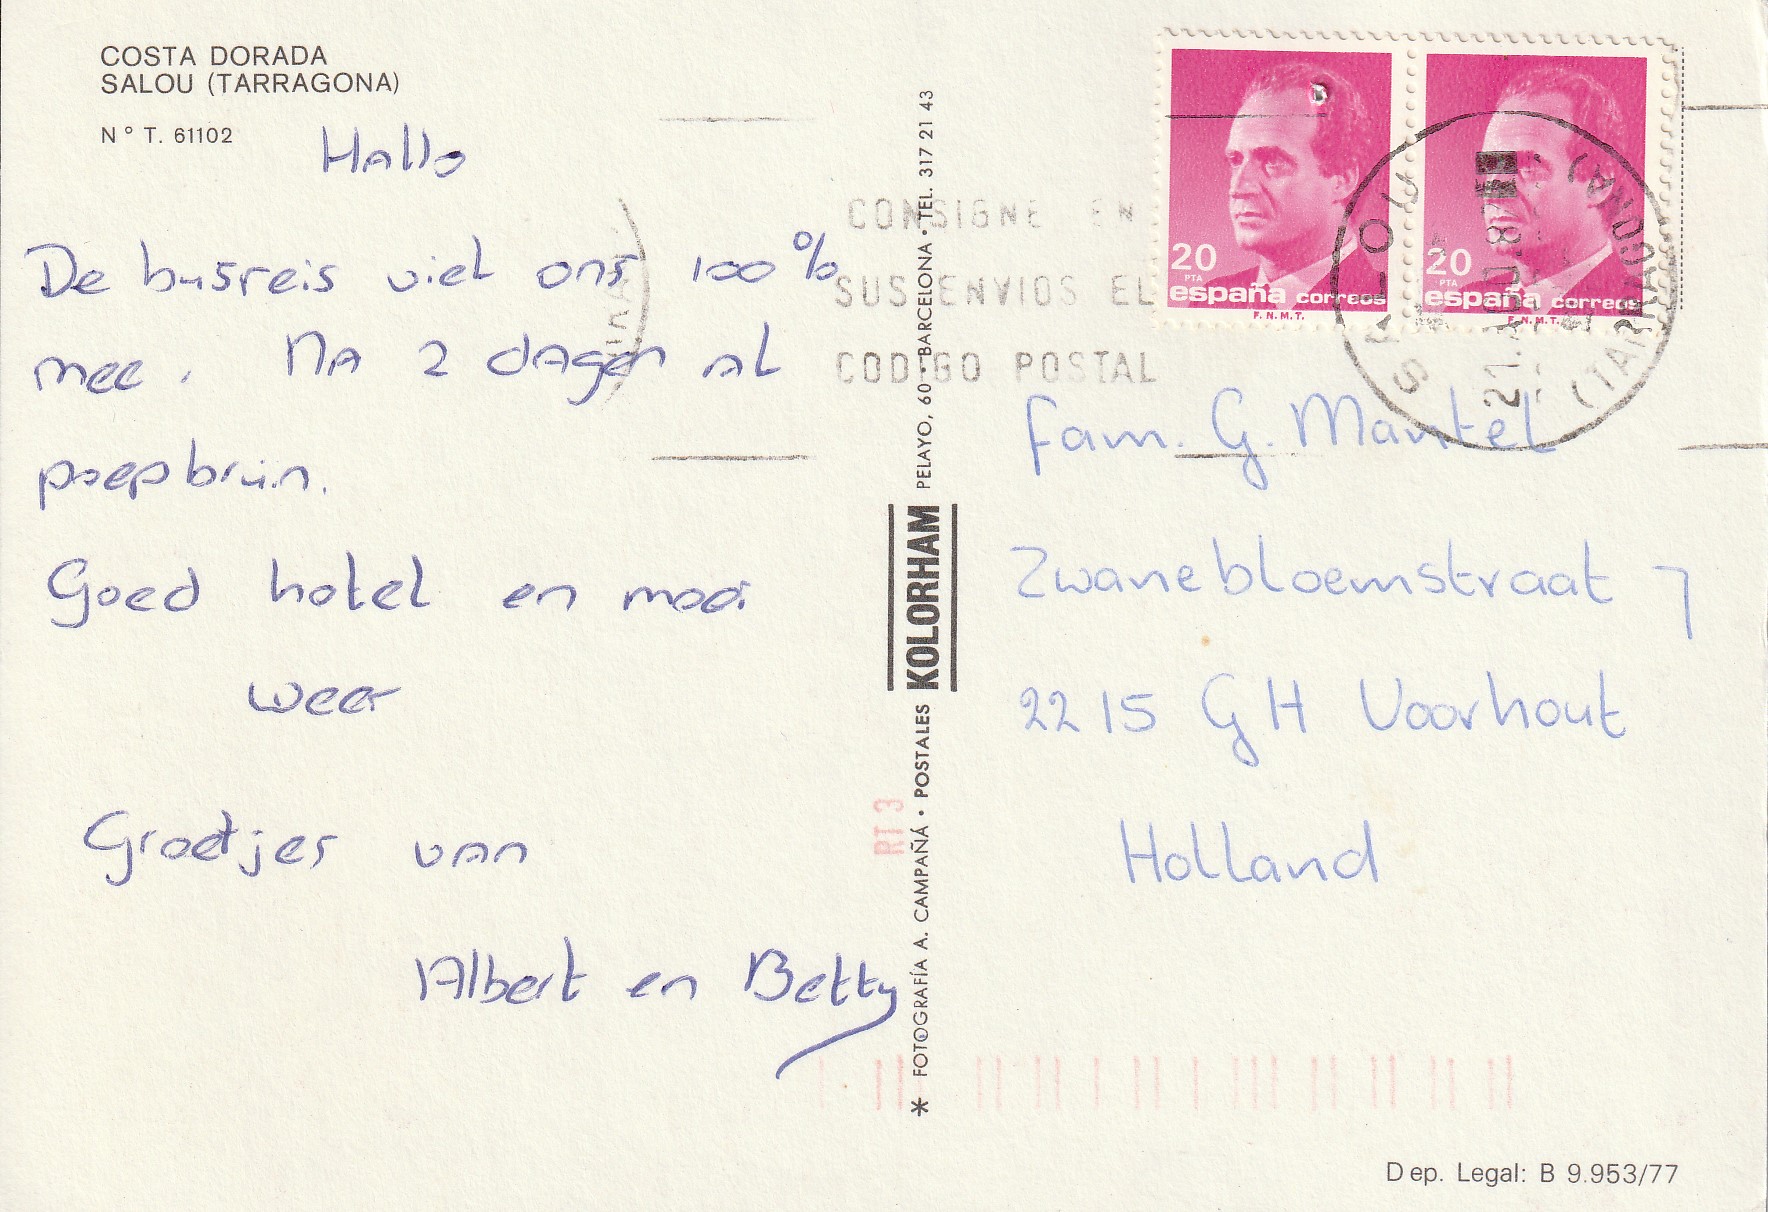 COSTA DORADA
SALOU (TARRAGONA)
N° T. 61102
Hallo
De busreis viel ons 100%
mee. Na 2 dagen al
poepbruin.
Goed hotel en mooi
weer
Groetjes van
Albert en Betty
CONSIGNE EN
SUS ENVIOS EL
CODIGO POSTAL
20
PTA
españa correos
F.N.M.T.
20
PTA
españa correos
F.N.M.T.
SALOU
(TARRAGONA)
Fam. G. Mantel
Zwanebloemstraat 7
2215 GH Voorhout
Holland
* FOTOGRAFÍA A. CAMPAÑÁ · POSTALES KOLORHAM PELAYO, 60 · BARCELONA · TEL. 317 21 43
RT 3
Dep. Legal: B 9.953/77